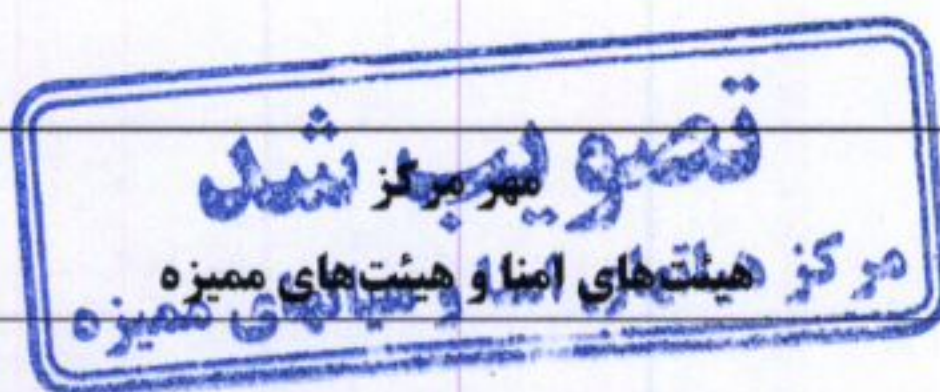 تصویب شد
مهر مرکز
هیئت‌های امنا و هیئت‌های ممیزه
مرکز هیئتهای امنا و هیاتهای ممیزه